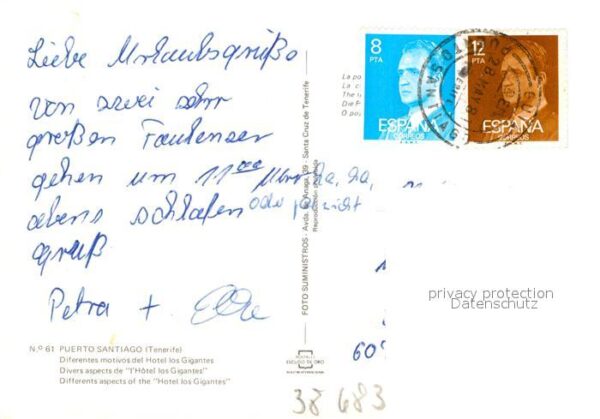 Liebe Urlaubsgrüße
von zwei sehr
großen Faulenzer
gehen um 11°° Uhr
abens schlafen
oder
gruß
Petra +
8
PTA
ESPAÑA
CORREOS
12
PTA
ESPAÑA
CORREOS
La po
La c
The
Die P
O po
FOTO SUMINISTROS - Avda. de Anaga, 39 - Santa Cruz de Tenerife
privacy protection
Datenschutz
60
N.º 61 PUERTO SANTIAGO (Tenerife)
Diferentes motivos del Hotel los Gigantes
Divers aspects de "l'Hôtel los Gigantes"
Differents aspects of the "Hotel los Gigantes"
ESCUDO DE ORO
38 683